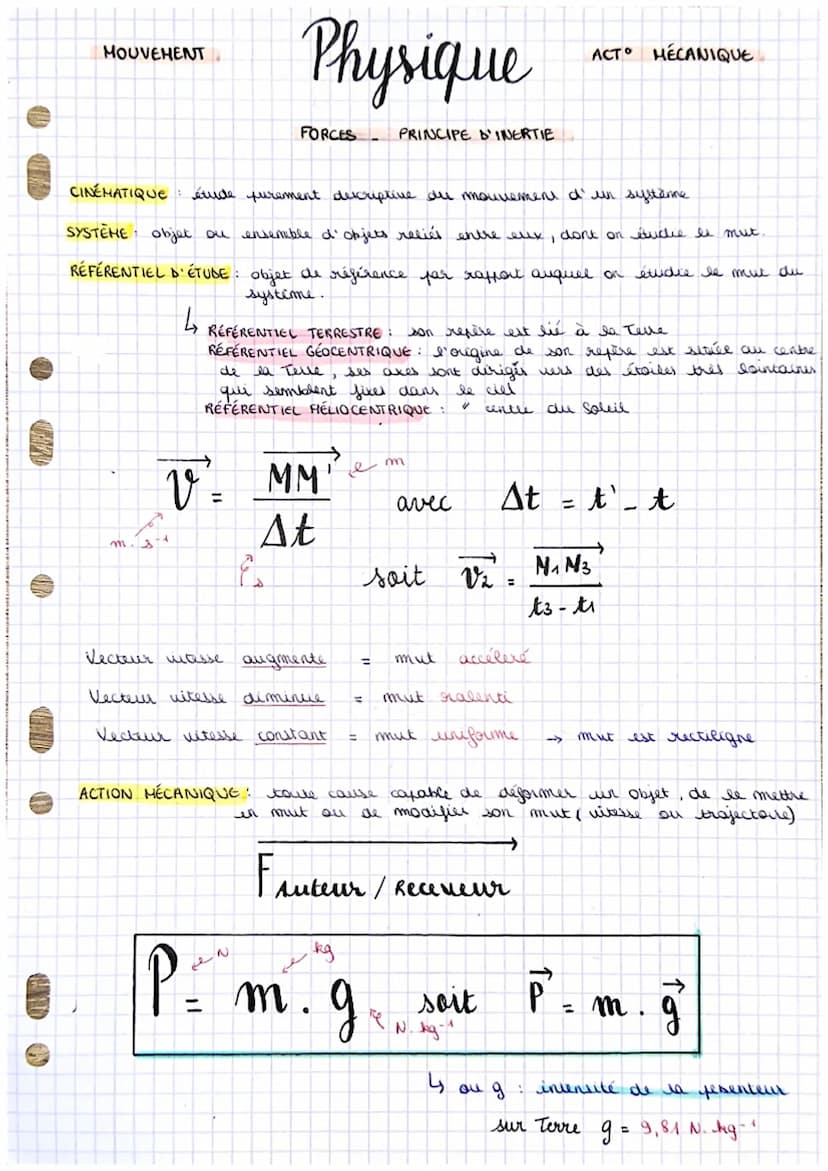 MOUVEMENT
Physique
ACT° MÉCANIQUE
FORCES - PRINCIPE D'INERTIE
CINÉMATIQUE : étude purement descriptive du mouvement d'un système
SYSTÈME : objet ou ensemble d'objets reliés entre eux, dont on étudie le mvt.
RÉFÉRENTIEL D'ÉTUDE : objet de référence par rapport auquel on étudie le mvt du
système.
↳ RÉFÉRENTIEL TERRESTRE : son repère est lié à la Terre
RÉFÉRENTIEL GÉOCENTRIQUE : l'origine de son repère est située au centre
de la Terre, ses axes sont dirigés vers des étoiles très lointaines
qui semblent fixes dans le ciel
RÉFÉRENTIEL HÉLIOCENTRIQUE : " centre du Soleil
V⃗ = MM'⃗ / Δt avec Δt = t' - t
m
m.s-1
s
soit V2⃗ = M1M3⃗ / t3 - t1
Vecteur vitesse augmente = mvt accéléré
Vecteur vitesse diminue = mvt ralenti
Vecteur vitesse constant = mvt uniforme → mvt est rectiligne
ACTION MÉCANIQUE : toute cause capable de déformer un objet, de le mettre
en mvt ou de modifier son mvt (vitesse ou trajectoire)
F⃗ Auteur / Receveur
N kg
P = m . g soit P⃗ = m . g⃗
N.kg-1
↳ ou g : intensité de la pesanteur
sur Terre g = 9,81 N.kg-1